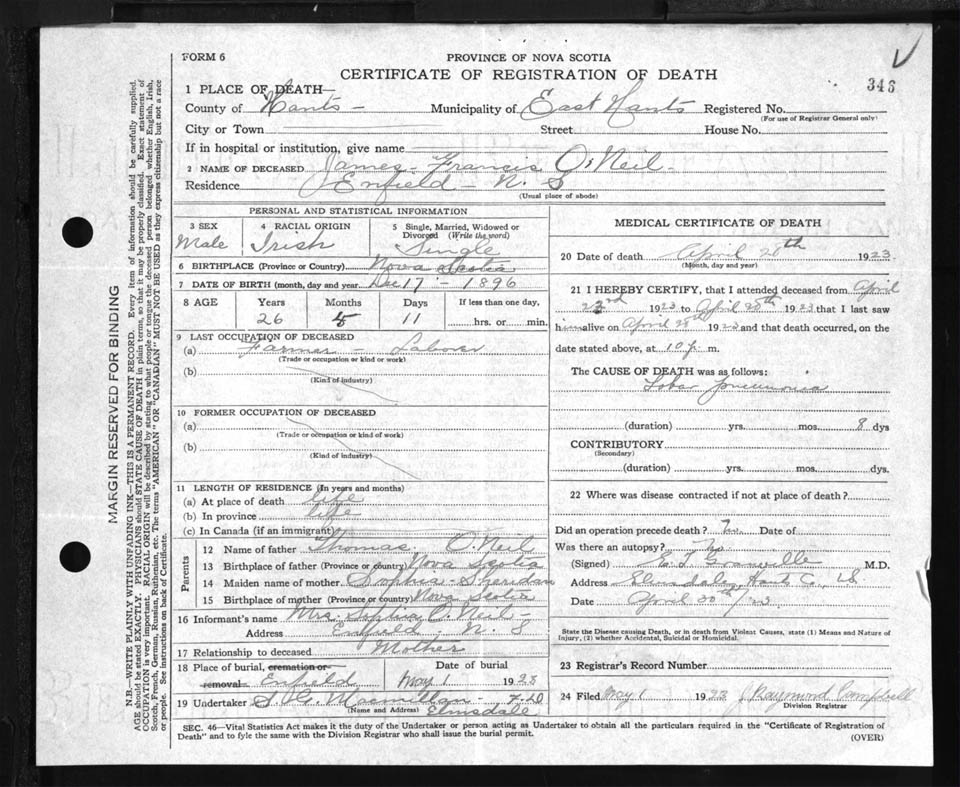 FORM 6
PROVINCE OF NOVA SCOTIA
CERTIFICATE OF REGISTRATION OF DEATH
346
1 PLACE OF DEATH—
County of Hants – Municipality of East Hants Registered No.
(For use of Registrar General only)
City or Town Street House No.
If in hospital or institution, give name
2 NAME OF DECEASED James Francis O'Neil
Residence Enfield – N. S
(Usual place of abode)
PERSONAL AND STATISTICAL INFORMATION
3 SEX 4 RACIAL ORIGIN 5 Single, Married, Widowed or Divorced (Write the word)
Male Irish Single
6 BIRTHPLACE (Province or Country) Nova Scotia
7 DATE OF BIRTH (month, day and year) Dec 17 – 1896
8 AGE Years Months Days If less than one day,
26 11 hrs. or min.
9 LAST OCCUPATION OF DECEASED
(a) Farmer – Laborer
(Trade or occupation or kind of work)
(b)
(Kind of industry)
10 FORMER OCCUPATION OF DECEASED
(a)
(Trade or occupation or kind of work)
(b)
(Kind of industry)
11 LENGTH OF RESIDENCE (In years and months)
(a) At place of death life
(b) In province life
(c) In Canada (if an immigrant)
Parents
12 Name of father Thomas O.Neil
13 Birthplace of father (Province or country) Nova Scotia
14 Maiden name of mother Sophia Sheridan
15 Birthplace of mother (Province or country) Nova Scotia
16 Informant's name Mrs. Sophia O'Neil –
Address Enfield N. S
17 Relationship to deceased Mother
18 Place of burial, cremation or Date of burial
removal Enfield May 1 1923
19 Undertaker Macmillan
(Name and Address) Elmsdale
MEDICAL CERTIFICATE OF DEATH
20 Date of death April 28th 1923
(Month, day and year)
21 I HEREBY CERTIFY, that I attended deceased from April
1923 to April 28th 1923 that I last saw
him alive on April 28th 1923 and that death occurred, on
date stated above, at 10 p. m.
The CAUSE OF DEATH was as follows:
Lobar pneumonia
(duration) yrs. mos. 8 dys
CONTRIBUTORY
(Secondary)
(duration) yrs. mos. dys.
22 Where was disease contracted if not at place of death?
Did an operation precede death? No Date of
Was there an autopsy? No
(Signed) Granville M.D.
Address Elmsdale, Hants Co., NS
Date April 30th/23
State the Disease causing Death, or in death from Violent Causes, state (1) Means and Nature of
Injury, (2) whether Accidental, Suicidal or Homicidal.
23 Registrar's Record Number
24 Filed May 1 1923 J Raymond Campbell
Division Registrar
SEC. 46—Vital Statistics Act makes it the duty of the Undertaker or person acting as Undertaker to obtain all the particulars required in the "Certificate of Registration of
Death" and to fyle the same with the Division Registrar who shall issue the burial permit.
(OVER)
MARGIN RESERVED FOR BINDING
N.B.—WRITE PLAINLY WITH UNFADING INK—THIS IS A PERMANENT RECORD. Every item of information should be carefully supplied.
AGE should be stated EXACTLY. PHYSICIANS should STATE CAUSE OF DEATH in plain terms, so that it may be properly classified. Exact statement of
OCCUPATION is very important. RACIAL ORIGIN will be described by stating to what people or tongue the deceased person belonged whether English, Irish,
Scotch, French, German, Russian, Ruthenian, etc. The terms "AMERICAN" OR "CANADIAN" MUST NOT BE USED as they express citizenship but not a race
or people. See instructions on back of Certificate.